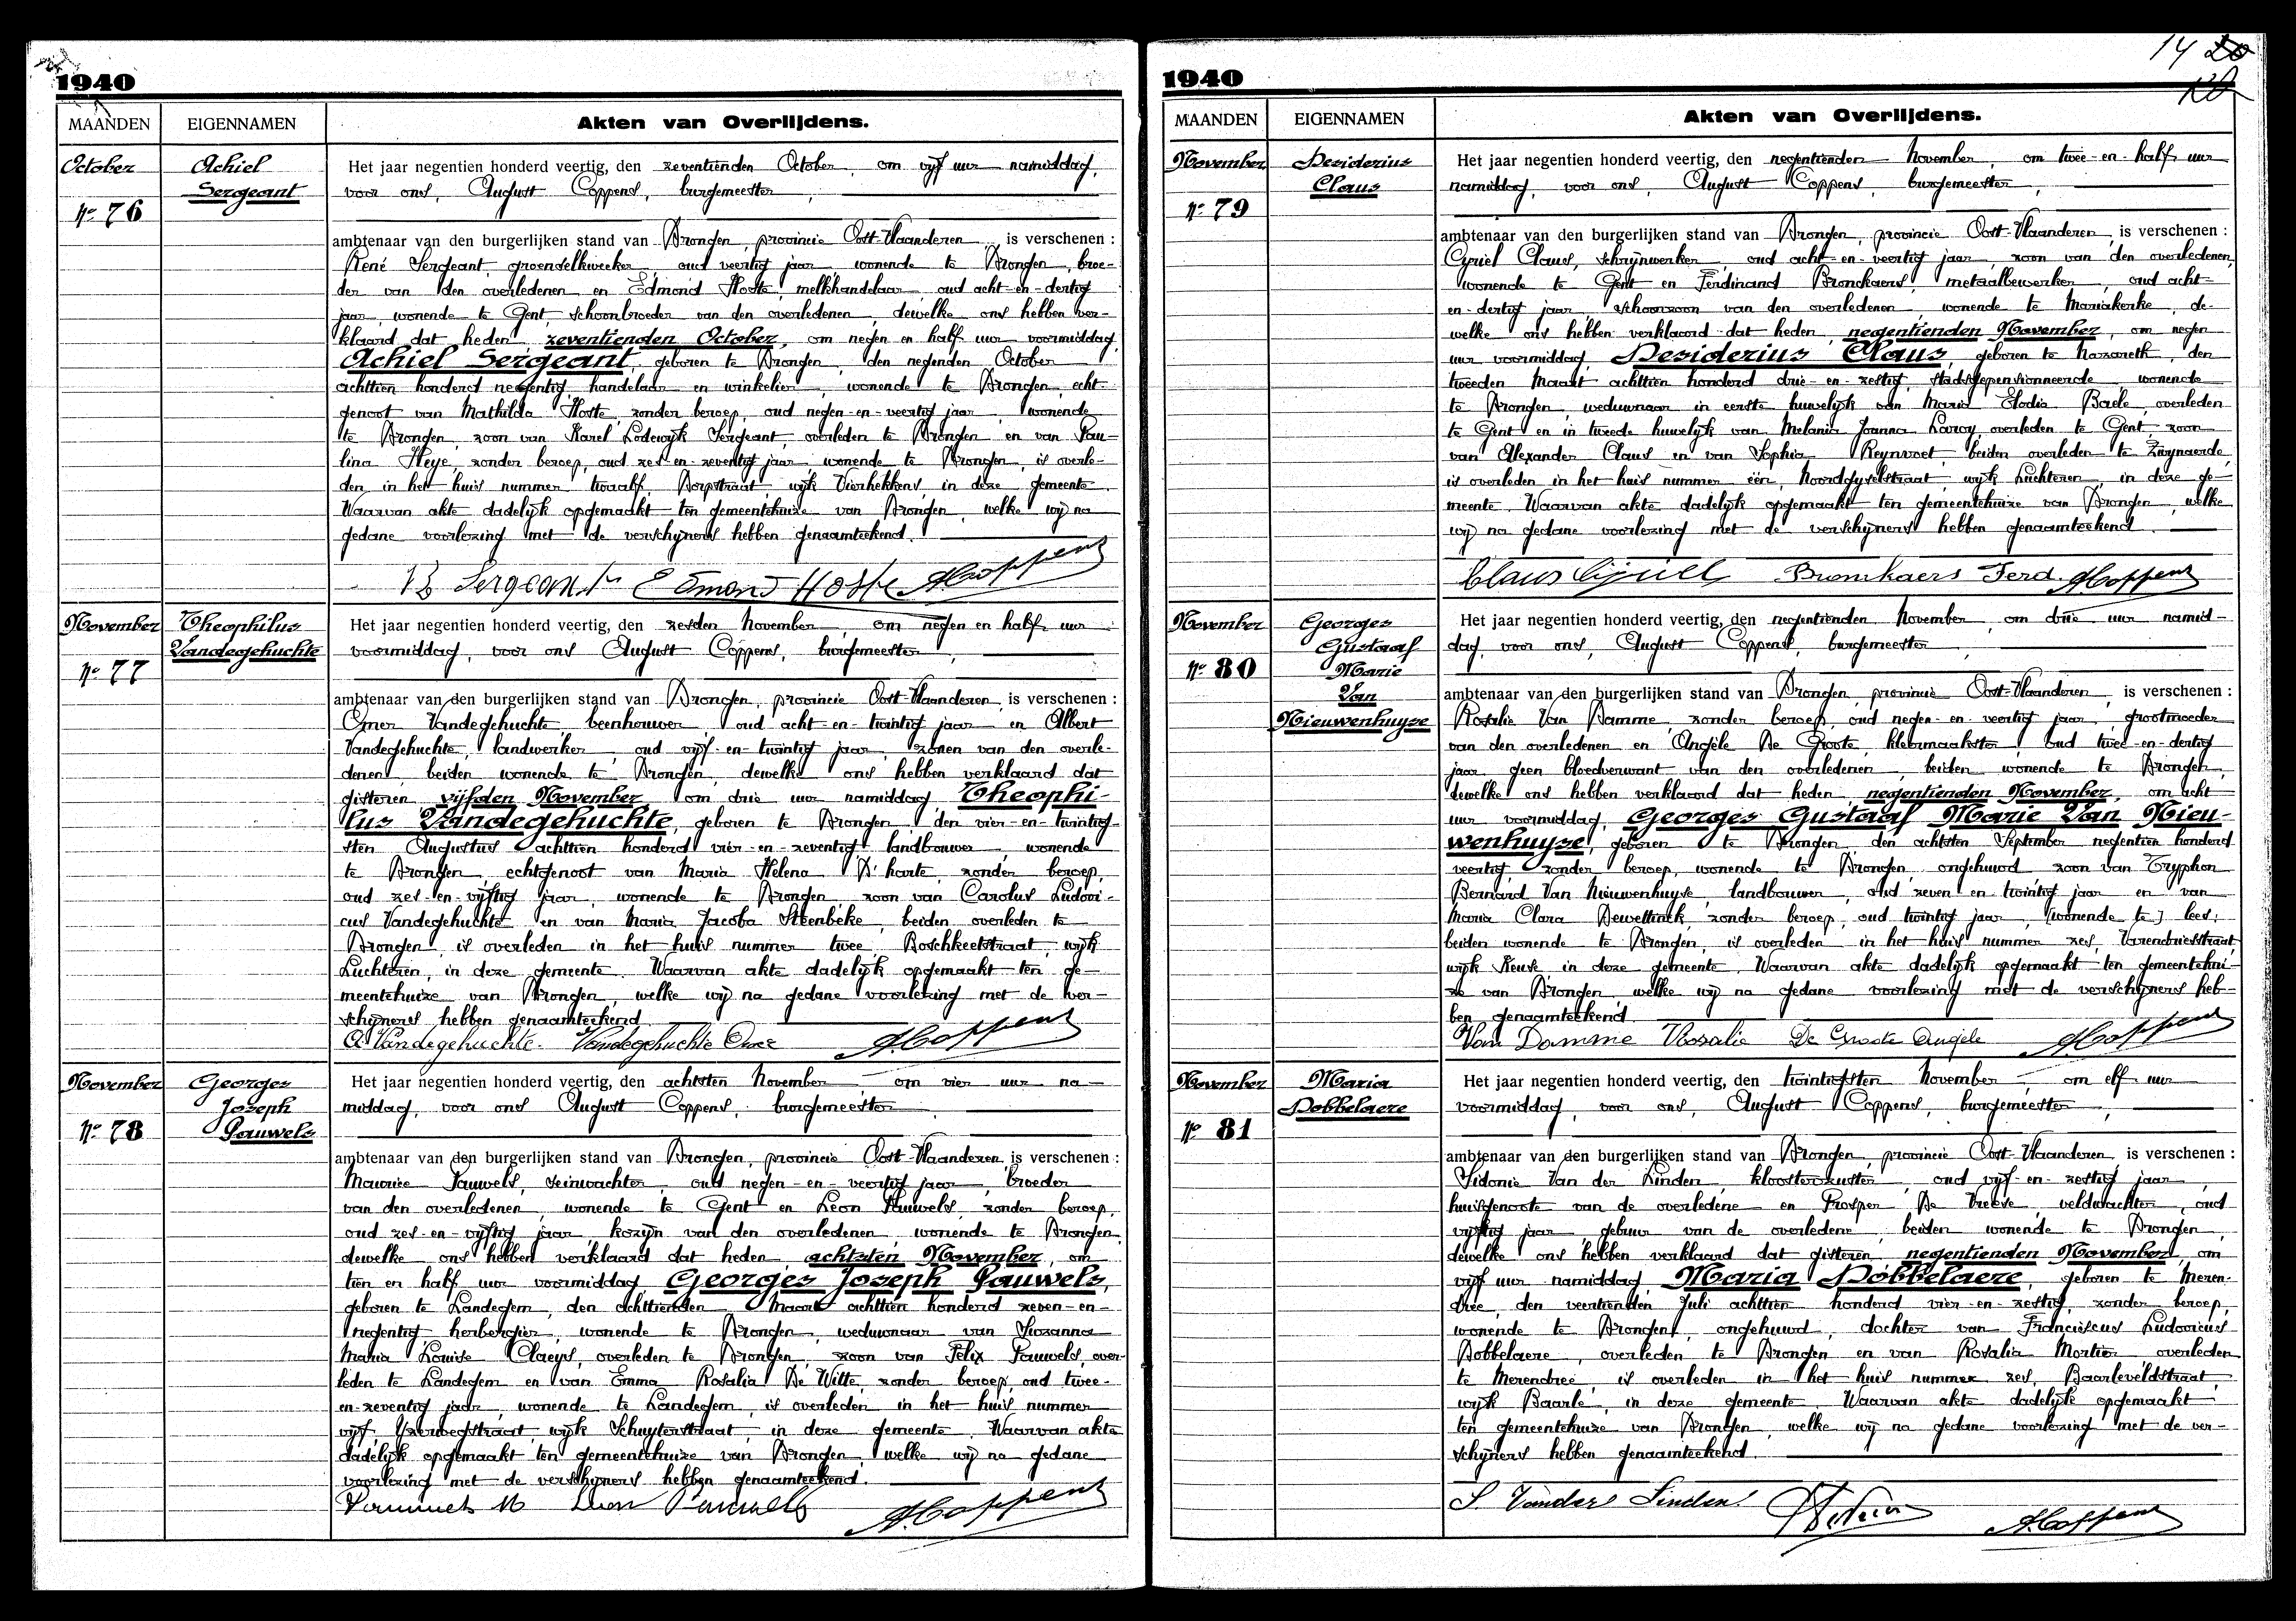 1940
MAANDEN
EIGENNAMEN
Akten van Overlijdens.
October
No 76
Achiel
Sergeant
Het jaar negentien honderd veertig, den zeventienden October, om vijf uur namiddag,
voor ons, August Coppens, burgemeester,
ambtenaar van den burgerlijken stand van Drongen, provincie Oost-Vlaanderen, is verschenen :
René Sergeant, groenselkweeker, oud veertig jaar, wonende te Drongen, broe-
der van den overledenen en Edmond Hoste, melkhandelaar, oud acht-en-dertig
jaar, wonende te Gent, schoonbroeder van den overledenen, dewelke ons hebben ver-
klaard dat heden, zeventienden October, om negen en half uur voormiddag,
Achiel Sergeant, geboren te Drongen, den negenden October
achttien honderd negentig, handelaar en winkelier, wonende te Drongen, echt-
genoot van Mathilda Hoste, zonder beroep, oud negen-en-veertig jaar, wonende
te Drongen, zoon van Karel Lodewijk Sergeant, overleden te Drongen en van Pau-
lina Heye, zonder beroep, oud zes-en-zeventig jaar, wonende te Drongen, is overle-
den in het huis nummer twaalf, Dorpstraat, wijk Vierhekkens, in deze gemeente.
Waarvan akte dadelijk opgemaakt ten gemeentehuize van Drongen, welke wij na
gedane voorlezing met de verschijners hebben genaamteekend.
Sergeant Edmond Hoste A. Coppens
November
No 77
Theophilus
Vandegehuchte
Het jaar negentien honderd veertig, den zesden November, om negen en half uur
voormiddag, voor ons August Coppens, burgemeester,
ambtenaar van den burgerlijken stand van Drongen, provincie Oost-Vlaanderen, is verschenen :
Omer Vandegehuchte, beenhouwer, oud acht-en-twintig jaar en Albert
Vandegehuchte, landwerker, oud vijf-en-twintig jaar, zonen van den overle-
denen, beiden wonende te Drongen, dewelke ons hebben verklaard dat
gisteren, vijfden November, om drie uur namiddag, Theophi-
lus Vandegehuchte, geboren te Drongen, den vier-en-twintig-
sten Augustus achttien honderd vier-en-zeventig, landbouwer, wonende
te Drongen, echtgenoot van Maria Helena D'hante, zonder beroep,
oud zes-en-vijftig jaar, wonende te Drongen, zoon van Carolus Ludovi-
cus Vandegehuchte en van Maria Jacoba Steenbeke, beiden overleden te
Drongen, is overleden in het huis nummer twee, Boschkeetstraat, wijk
Luchteren, in deze gemeente. Waarvan akte dadelijk opgemaakt ten ge-
meentehuize van Drongen, welke wij na gedane voorlezing met de ver-
schijners hebben genaamteekend.
A. Vandegehuchte. Vandegehuchte Omer A. Coppens
November
No 78
Georges
Joseph
Pauwels
Het jaar negentien honderd veertig, den achtsten November, om vier uur na-
middag, voor ons August Coppens, burgemeester,
ambtenaar van den burgerlijken stand van Drongen, provincie Oost-Vlaanderen, is verschenen :
Maurice Pauwels, seinwachter, oud negen-en-veertig jaar, broeder
van den overledenen, wonende te Gent en Leon Pauwels, zonder beroep,
oud zes-en-vijftig jaar, kozijn van den overledenen, wonende te Drongen,
dewelke ons hebben verklaard dat heden, achtsten November, om
tien en half uur voormiddag, Georges Joseph Pauwels,
geboren te Landegem, den achttienden Maart achttien honderd zeven-en-
negentig, herbergier, wonende te Drongen, weduwnaar van Suzanna
Maria Louise Claeys, overleden te Drongen, zoon van Felix Pauwels, over-
leden te Landegem en van Emma Rosalia De Witte, zonder beroep, oud twee-
en-zeventig jaar, wonende te Landegem, is overleden in het huis nummer
vijf, Yzerwegstraat, wijk Schuyterstraat, in deze gemeente. Waarvan akte
dadelijk opgemaakt ten gemeentehuize van Drongen, welke wij na gedane
voorlezing met de verschijners hebben genaamteekend.
Pauwels M Leon Pauwels A. Coppens
14 20
1940
MAANDEN
EIGENNAMEN
Akten van Overlijdens.
November
No 79
Desiderius
Claus
Het jaar negentien honderd veertig, den negentienden November, om twee-en-half uur
namiddag, voor ons, August Coppens, burgemeester,
ambtenaar van den burgerlijken stand van Drongen, provincie Oost-Vlaanderen, is verschenen :
Cyriel Claus, schrijnwerker, oud acht-en-veertig jaar, zoon van den overledenen,
wonende te Gent en Ferdinand Bronckaers, metaalbewerker, oud acht-
en-dertig jaar, schoonzoon van den overledenen, wonende te Mariakerke, de-
welke ons hebben verklaard dat heden, negentienden November, om negen
uur voormiddag, Desiderius Claus, geboren te Nazareth, den
tweeden Maart achttien honderd drie-en-zestig, stadsgepensionneerde, wonende
te Drongen, weduwnaar in eerste huwelijk van Maria Elodia Baele, overleden
te Gent en in tweede huwelijk van Melania Joanna Laroy, overleden te Gent, zoon
van Alexander Claus en van Sophia Reynvoet, beiden overleden te Zwynaerde,
is overleden in het huis nummer één, Noordgyselstraat, wijk Luchteren, in deze ge-
meente. Waarvan akte dadelijk opgemaakt ten gemeentehuize van Drongen, welke
wij na gedane voorlezing met de verschijners hebben genaamteekend.
Claus Cyriel Bronckaers Ferd. A. Coppens
November
No 80
Georges
Gustaaf
Marie
Van
Nieuwenhuyse
Het jaar negentien honderd veertig, den negentienden November, om drie uur namid-
dag, voor ons, August Coppens, burgemeester,
ambtenaar van den burgerlijken stand van Drongen, provincie Oost-Vlaanderen, is verschenen :
Rosalie Van Damme, zonder beroep, oud negen-en-veertig jaar, grootmoeder
van den overledenen en Angèle De Groote, kleermaakster, oud twee-en-dertig
jaar, geen bloedverwant van den overledenen, beiden wonende te Drongen,
dewelke ons hebben verklaard dat heden, negentienden November, om acht
uur voormiddag, Georges Gustaaf Marie Van Nieu-
wenhuyse, geboren te Drongen, den achtsten September negentien honderd
veertig, zonder beroep, wonende te Drongen, ongehuwd, zoon van Tryphon
Bernard Van Nieuwenhuyse, landbouwer, oud zeven en twintig jaar en van
Maria Clara Dewettinck, zonder beroep, oud twintig jaar, [wonende te] lees:
beiden wonende te Drongen, is overleden in het huis nummer zes, Varendriesstraat,
wijk Keuze, in deze gemeente. Waarvan akte dadelijk opgemaakt ten gemeentehui-
ze van Drongen, welke wij na gedane voorlezing met de verschijners heb-
ben genaamteekend.
Van Damme Rosalie De Groote Angele A. Coppens
November
No 81
Maria
Dobbelaere
Het jaar negentien honderd veertig, den twintigsten November, om elf uur
voormiddag, voor ons, August Coppens, burgemeester,
ambtenaar van den burgerlijken stand van Drongen, provincie Oost-Vlaanderen, is verschenen :
Sidonie Van der Linden, kloosterzuster, oud vijf-en-zestig jaar,
huisgenoote van de overledene en Prosper De Vreese, veldwachter, oud
vijftig jaar, gebuur van de overledene, beiden wonende te Drongen,
dewelke ons hebben verklaard dat gisteren, negentienden November, om
vijf uur namiddag, Maria Dobbelaere, geboren te Meren-
dree, den veertienden Juli achttien honderd vier-en-zestig, zonder beroep,
wonende te Drongen, ongehuwd, dochter van Franciscus Ludovicus
Dobbelaere, overleden te Drongen en van Rosalia Mortier, overleden
te Merendree, is overleden in het huis nummer zes, Baarleveldstraat,
wijk Baarle, in deze gemeente. Waarvan akte dadelijk opgemaakt
ten gemeentehuize van Drongen, welke wij na gedane voorlezing met de ver-
schijners hebben genaamteekend.
S. Vander Linden A. Coppens